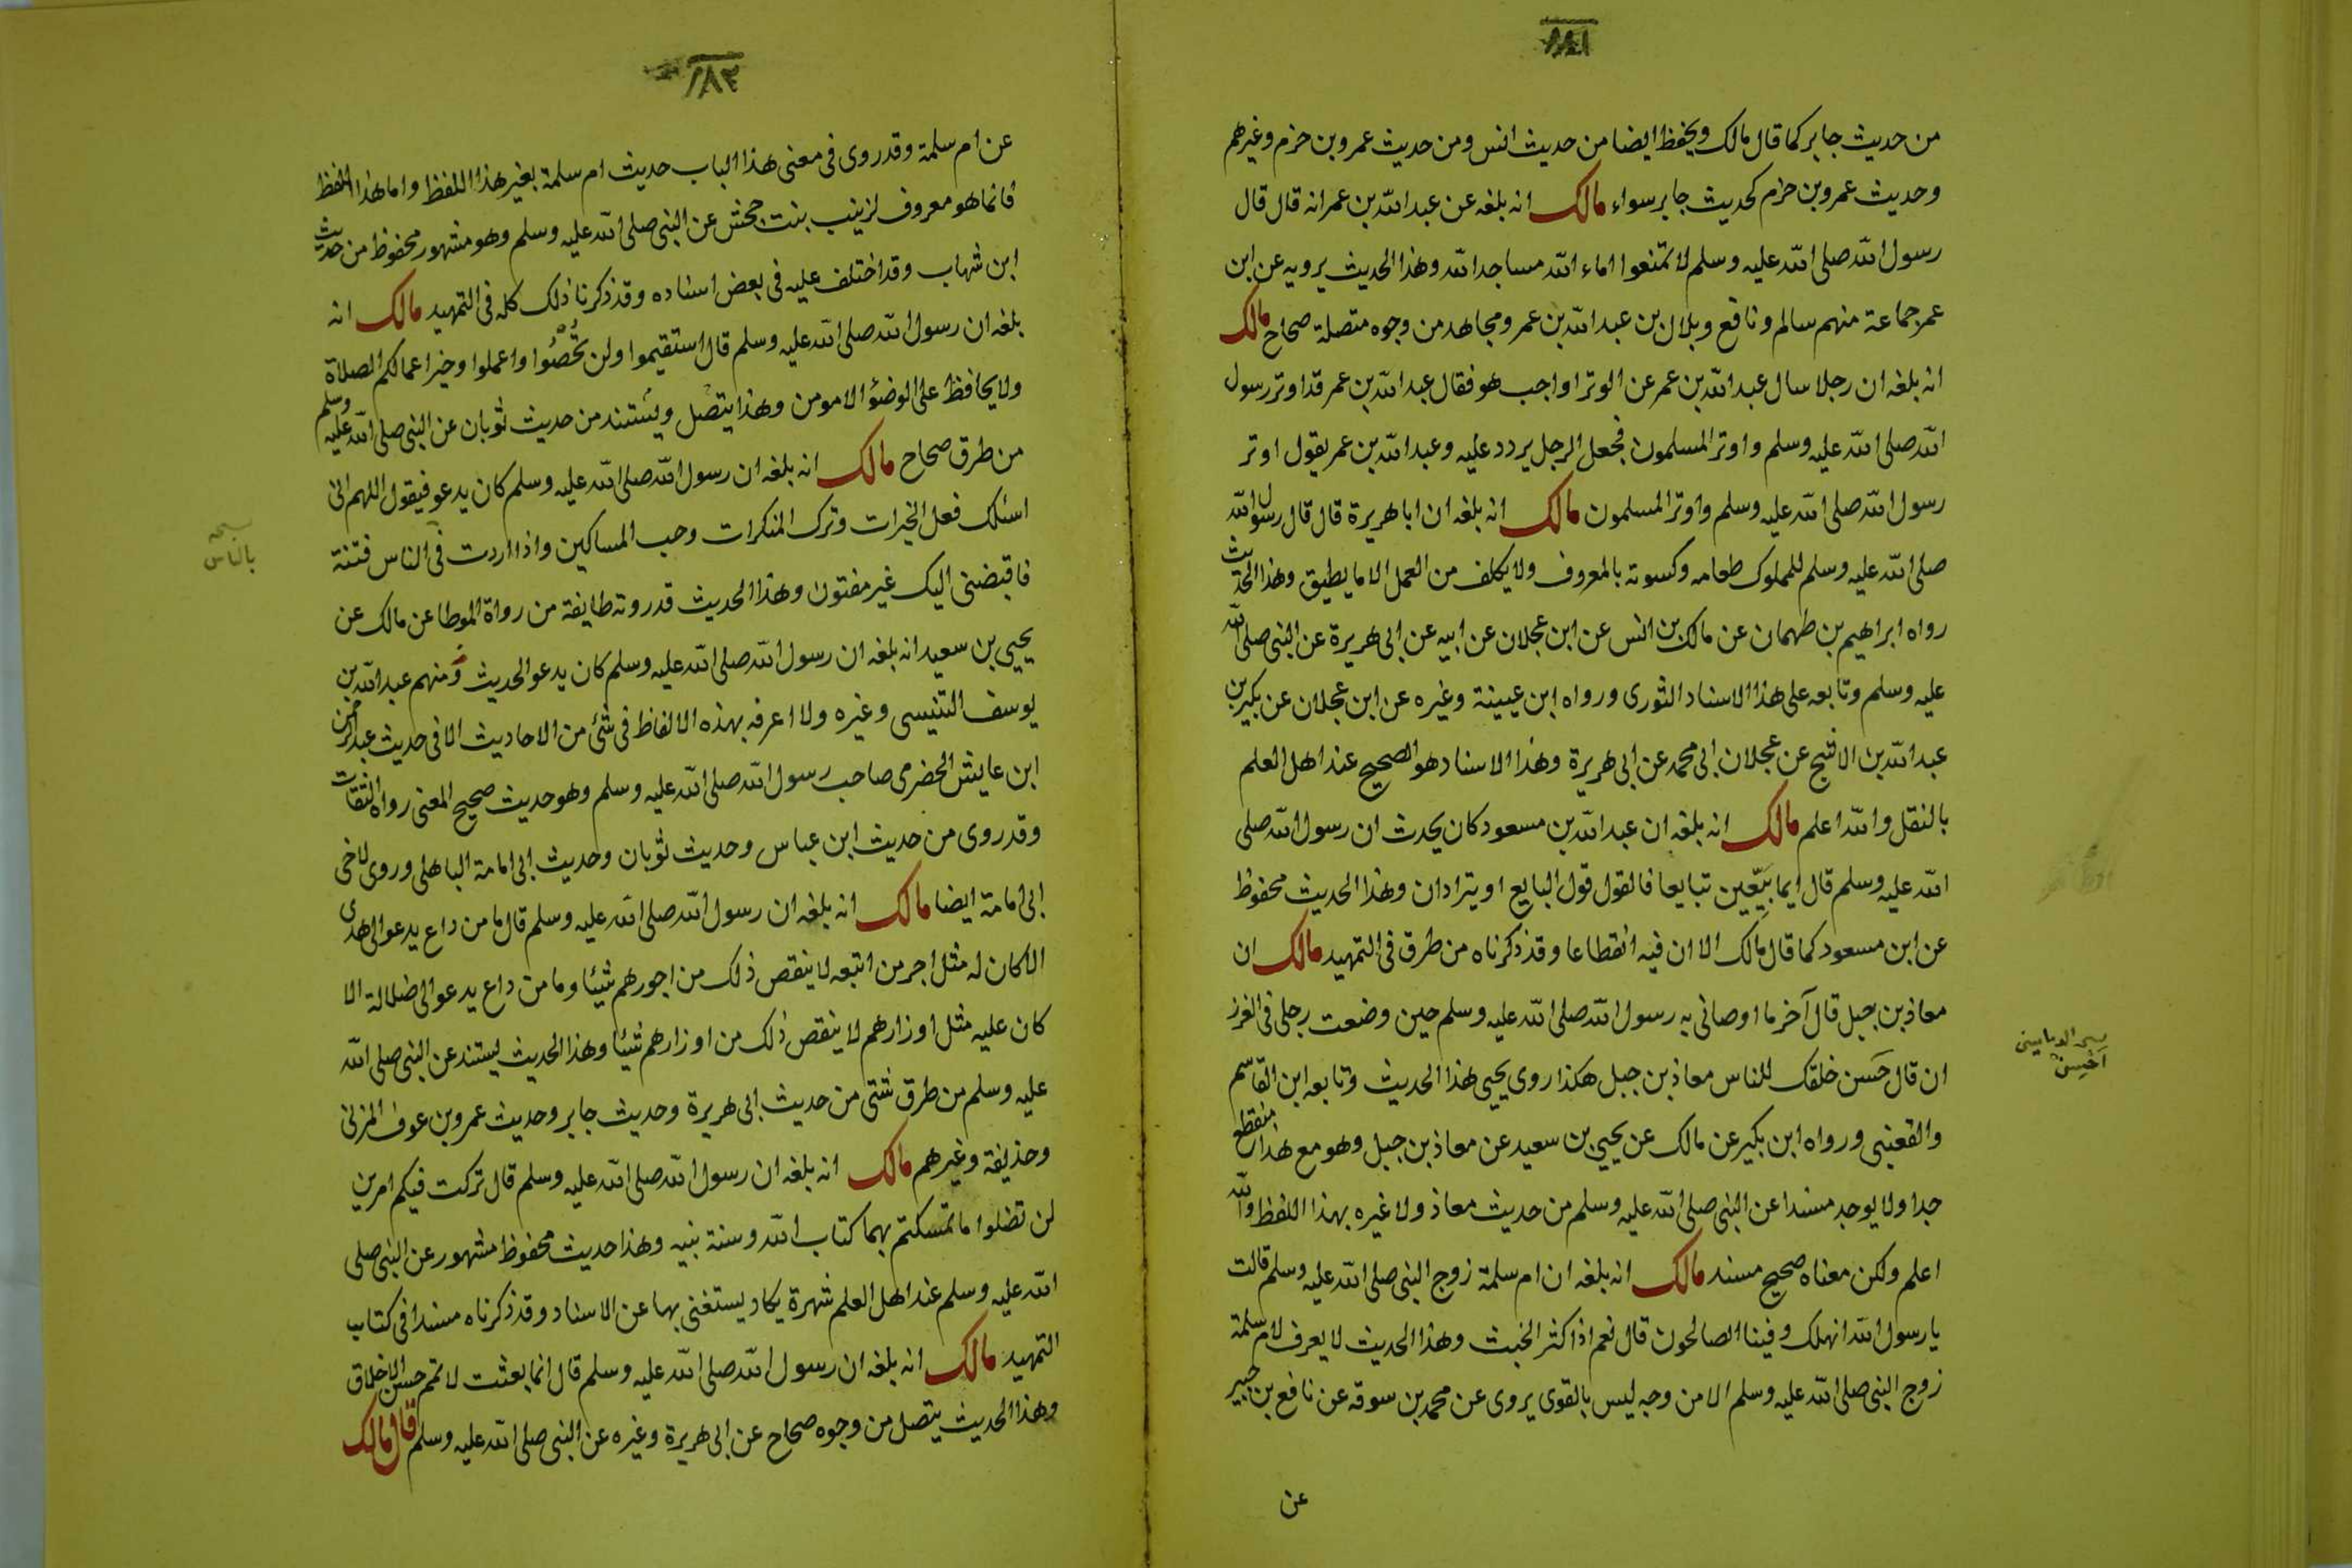 من حديث جابر كما قال مالك ويحفظ ايضا من حديث انس ومن حديث عمرو بن حزم وغيرهم
وحديث عمرو بن حزم كحديث جابر سواء مالك انه بلغه عن عبد الله بن عمر انه قال قال
رسول الله صلى الله عليه وسلم لا تمنعوا اماء الله مساجد الله وهذا الحديث يرويه عن ابن
عمر جماعة منهم سالم ونافع وبلال بن عبد الله بن عمر ومجاهد من وجوه متصلة صحاح مالك
انه بلغه ان رجلا سال عبد الله بن عمر عن الوتر اواجب هو فقال عبد الله بن عمر قد اوتر رسول
الله صلى الله عليه وسلم واوتر المسلمون فجعل الرجل يردد عليه وعبد الله بن عمر يقول اوتر
رسول الله صلى الله عليه وسلم واوتر المسلمون مالك انه بلغه ان ابا هريرة قال قال رسول الله
صلى الله عليه وسلم للمملوك طعامه وكسوته بالمعروف ولا يكلف من العمل الا ما يطيق وهذا الحديث
رواه ابراهيم بن طهمان عن مالك بن انس عن ابن عجلان عن ابيه عن ابى هريرة عن النبى صلى الله
عليه وسلم وتابعه على هذا الاسناد الثورى ورواه ابن عيينة وغيره عن ابن عجلان عن بكير بن
عبد الله بن الاشج عن عجلان ابى محمد عن ابى هريرة وهذا الاسناد هو الصحيح عند اهل العلم
بالنقل والله اعلم مالك انه بلغه ان عبد الله بن مسعود كان يحدث ان رسول الله صلى
الله عليه وسلم قال ايما بَيِّعين تبايعا فالقول قول البايع او يترادان وهذا الحديث محفوظ
عن ابن مسعود كما قال مالك الا ان فيه انقطاعا وقد ذكرناه من طرق فى التمهيد مالك ان
معاذ بن جبل قال آخر ما اوصانى به رسول الله صلى الله عليه وسلم حين وضعت رجلى فى الغرز
ان قال حَسَن خلقك للناس معاذ بن جبل هكذا روى يحيى هذا الحديث وتابعه ابن القاسم
والقعنبى ورواه ابن بكير عن مالك عن يحيى بن سعيد عن معاذ بن جبل وهو مع هذا منقطع
جدا ولا يوجد مسندا عن النبى صلى الله عليه وسلم من حديث معاذ ولا غيره بهذا اللفظ والله
اعلم ولكن معناه صحيح مسند مالك انه بلغه ان ام سلمة زوج النبى صلى الله عليه وسلم قالت
يا رسول الله انهلك وفينا الصالحون قال نعم اذا كثر الخبث وهذا الحديث لا يعرف لام سلمة
زوج النبى صلى الله عليه وسلم الا من وجه ليس بالقوى يروى عن محمد بن سوقه عن نافع بن جبير
عن
احسن
١٨٣
عن ام سلمة وقد روى فى معنى هذا الباب حديث ام سلمة بغير هذا اللفظ واما هذا اللفظ
فانما هو معروف لزينب بنت جحش عن النبى صلى الله عليه وسلم وهو مشهور محفوظ من حديث
ابن شهاب وقد اختلف عليه فى بعض اسناده وقد ذكرنا ذلك كله فى التمهيد مالك انه
بلغه ان رسول الله صلى الله عليه وسلم قال استقيموا ولن تُحْصُوا واعملوا وخير اعمالكم الصلاة
ولا يحافظ على الوضؤ الا مومن وهذا يتصل ويستند من حديث ثوبان عن النبى صلى الله عليه وسلم
من طرق صحاح مالك انه بلغه ان رسول الله صلى الله عليه وسلم كان يدعو فيقول اللهم انى
اسئلك فعل الخيرات وترك المنكرات وحب المساكين واذا اردت فى الناس فتنة
فاقبضنى اليك غير مفتون وهذا الحديث قد روته طايفة من رواة الموطا عن مالك عن
يحيى بن سعيد انه بلغه ان رسول الله صلى الله عليه وسلم كان يدعو الحديث ومنهم عبد الله بن
يوسف التنيسى وغيره ولا اعرفه بهذه الالفاظ فى شئ من الاحاديث الا فى حديث عبد الرحمن
ابن عايش الحضرمى صاحب رسول الله صلى الله عليه وسلم وهو حديث صحيح المعنى رواه الثقات
وقد روى من حديث ابن عباس وحديث ثوبان وحديث ابى امامة الباهلى وروى لاخى
ابى امامة ايضا مالك انه بلغه ان رسول الله صلى الله عليه وسلم قال ما من داع يدعو الى هدى
الا كان له مثل اجر من اتبعه لا ينقص ذلك من اجورهم شيئا وما من داع يدعو الى ضلالة الا
كان عليه مثل اوزارهم لا ينقص ذلك من اوزارهم شيئا وهذا الحديث يستند عن النبى صلى الله
عليه وسلم من طرق شتى من حديث ابى هريرة وحديث جابر وحديث عمرو بن عوف المزنى
وحذيفة وغيرهم مالك انه بلغه ان رسول الله صلى الله عليه وسلم قال تركت فيكم امرين
لن تضلوا ما تمسكتم بهما كتاب الله وسنة نبيه وهذا حديث محفوظ مشهور عن النبى صلى
الله عليه وسلم عند اهل العلم شهرة يكاد يستغنى بها عن الاسناد وقد ذكرناه مسندا فى كتاب
التمهيد مالك انه بلغه ان رسول الله صلى الله عليه وسلم قال انما بعثت لاتمم حسن الاخلاق
وهذا الحديث يتصل من وجوه صحاح عن ابى هريرة وغيره عن النبى صلى الله عليه وسلم قال مالك
بالناس